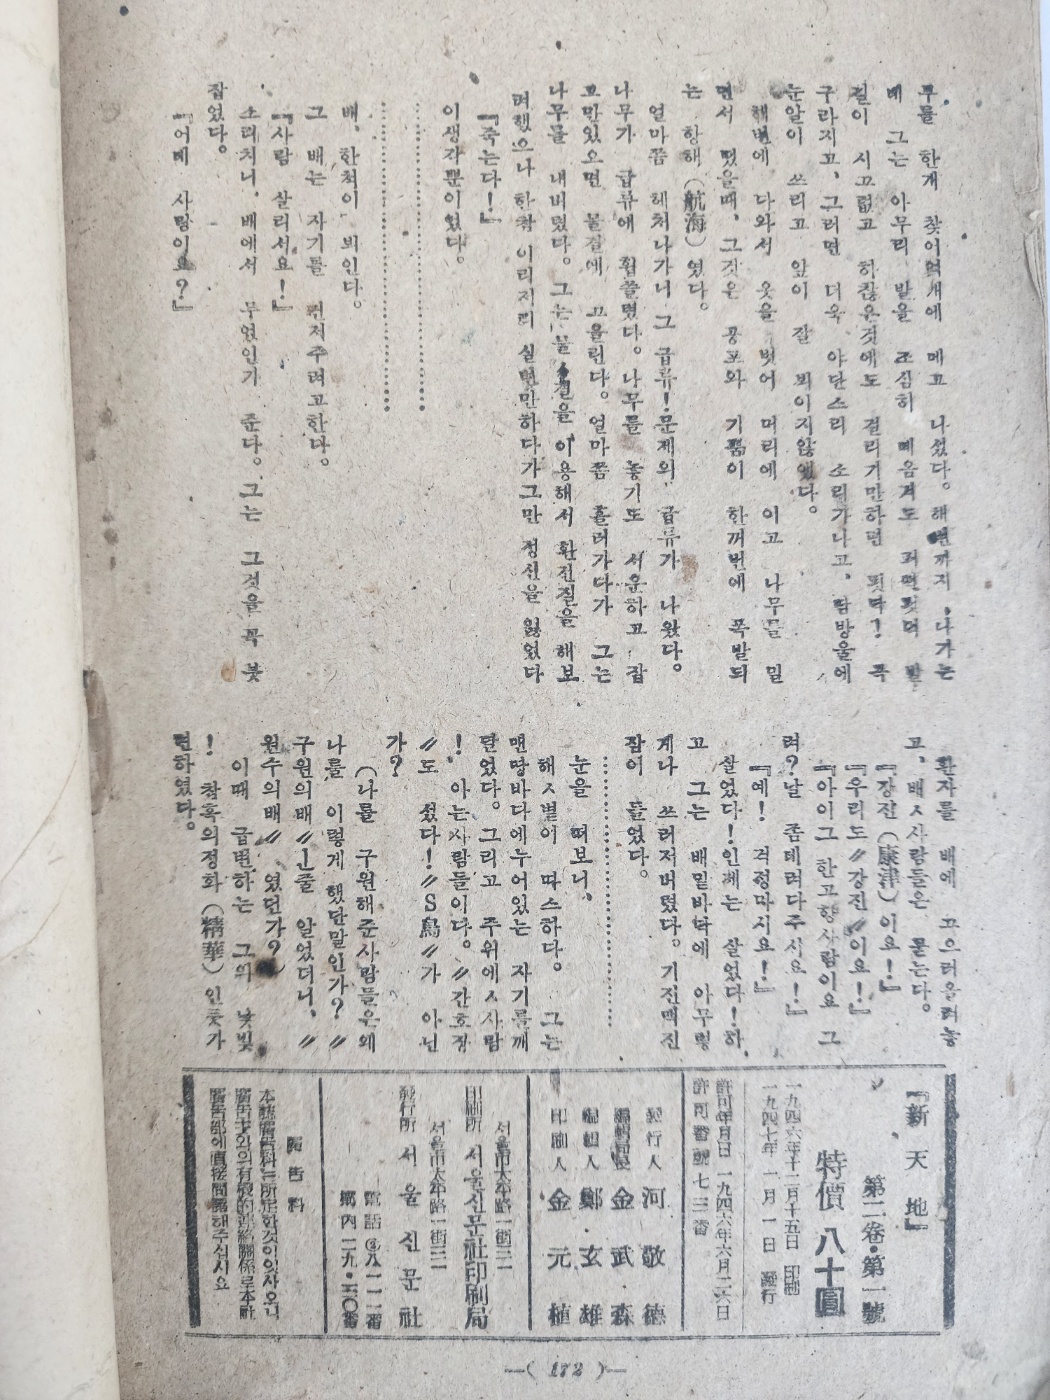 무를 한개 찾어어깨에 메고 나섰다。해변까지 나가는
데 그는 아무리 발을 조심히 떼옴겨도
길이 시끄럽고 하찮은것에도 걸리기만하면
구라지고、그러면 더욱 야단스리 소리가나고、땀방울에
눈알이 쓰리고 앞이 잘 뵈이지않었다。
해변에 다와서 옷을 벗어 머리에 이고 나무를 밀
면서 떴을때、그것은 공포와 기쁨이 한꺼번에 폭발되
는 항해(航海)였다。
얼마쯤 헤처나가니 그 급류!문제의 급류가 나왔다。
나무가 급류에 휩쓸렸다。나무를 놓기도 서운하고 잡
고만있으면 물길에 고을린다。얼마쯤 흘러가다가 그는
나무를 내버렸다。그는 물결을 이용해서 환전질을 해보
려했으나 한참 이리저리 실면만하다가그만 정신을 잃었다
『죽는다!』
이생각뿐이었다。
……………………
……………………
배、한척이 뵈인다。
그 배는 자기를 련저주려고한다。
『사람 살리서요!』
소리치니、배에서 무었인가 준다。그는 그것을 꼭 붓
잡었다。
『어데 사람이요?』
환자를 배에 끄으러올려놓
고、배ㅅ사람들은 묻는다。
『강진(康津)이요!』
『우리도〃강진〃이요!』
『아이그 한고향사람이요 그
려?날 좀데려다주시요!』
『예! 걱정마시요!』
살었다!인제는 살었다!하
고 그는 배밑바닥에 아무렇
게나 쓰러저버렸다。기진맥진
잠이 들었다。
……………………
눈을 떠보니、
해ㅅ별이 따스하다。 그는
맨땅바다에누어있는 자기를깨
닫었다。그리고 주위에ㅅ사람
! 아는사람들이다。〃간호장
〃도 섰다!〃S鳥〃가 아닌
가?
(나를 구원해준사람들은왜
나를 이렇게 했단말인가?〃
구원의배〃ㄴ줄 알었더니、〃
원수의배〃였던가?)
이때 급변하는 그의 낯빛
! 참혹의정화(精華)인듯가
련하였다。
『新天地』
第二卷・第一號
特價 八十圓
一九四六年十二月十五日 印刷
一九四七年 一月 一日 發行
許可年月日 一九四六年六月二六日
許可番號 七三番
發行人 河敬德
編輯局長 金武森
編輯人 鄭玄雄
印刷人 金元植
서울市太平路一街三一
印刷所 서울신문社印刷局
서울市太平路一街三一
發行所 서울신문社
電話
鄕內 一九・三〇番
廣告料
本誌廣告料는所定한것이있사오니
廣告主와의有機的連絡關係로本社
廣告部에直接問議해주십시요
—( 172 )—